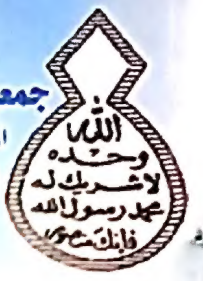 جمعـ
الله
وحده
لا شريك له
محمد رسول الله
فإنك منصور